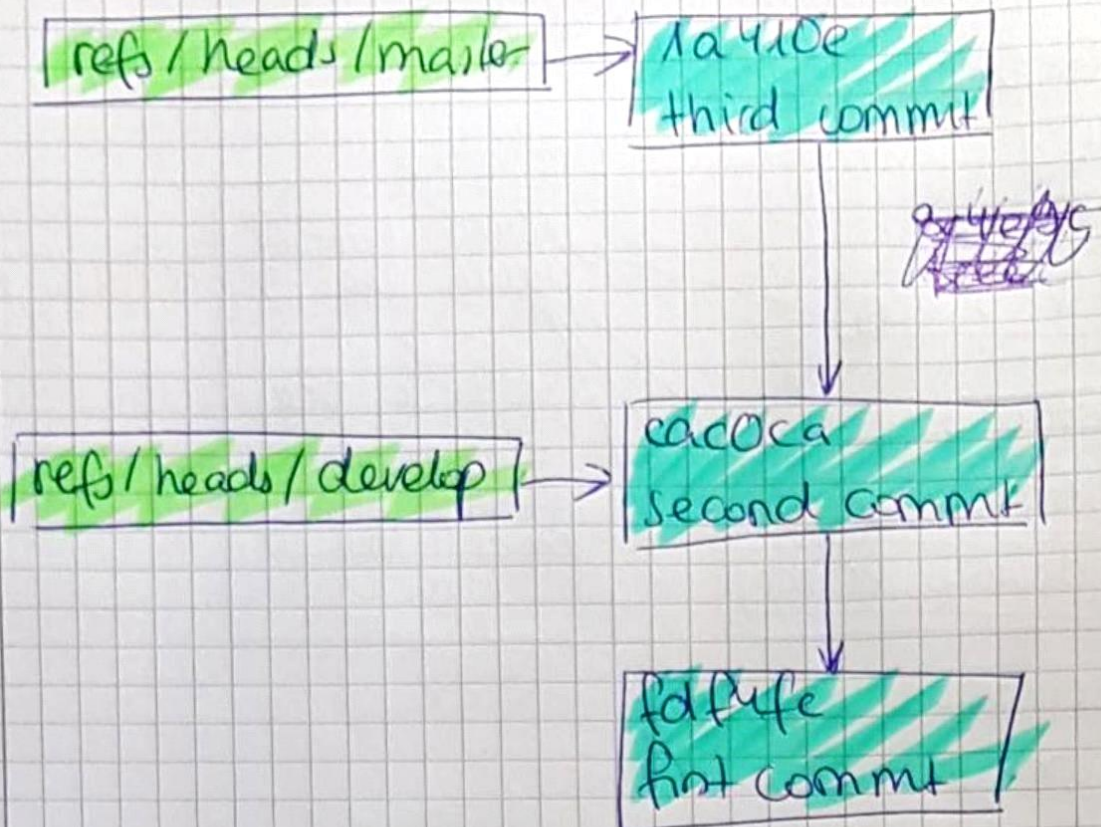 refs/heads/master
1a410e
third commit
cac0ca
refs/heads/develop
second commit
fdf4fe
first commit